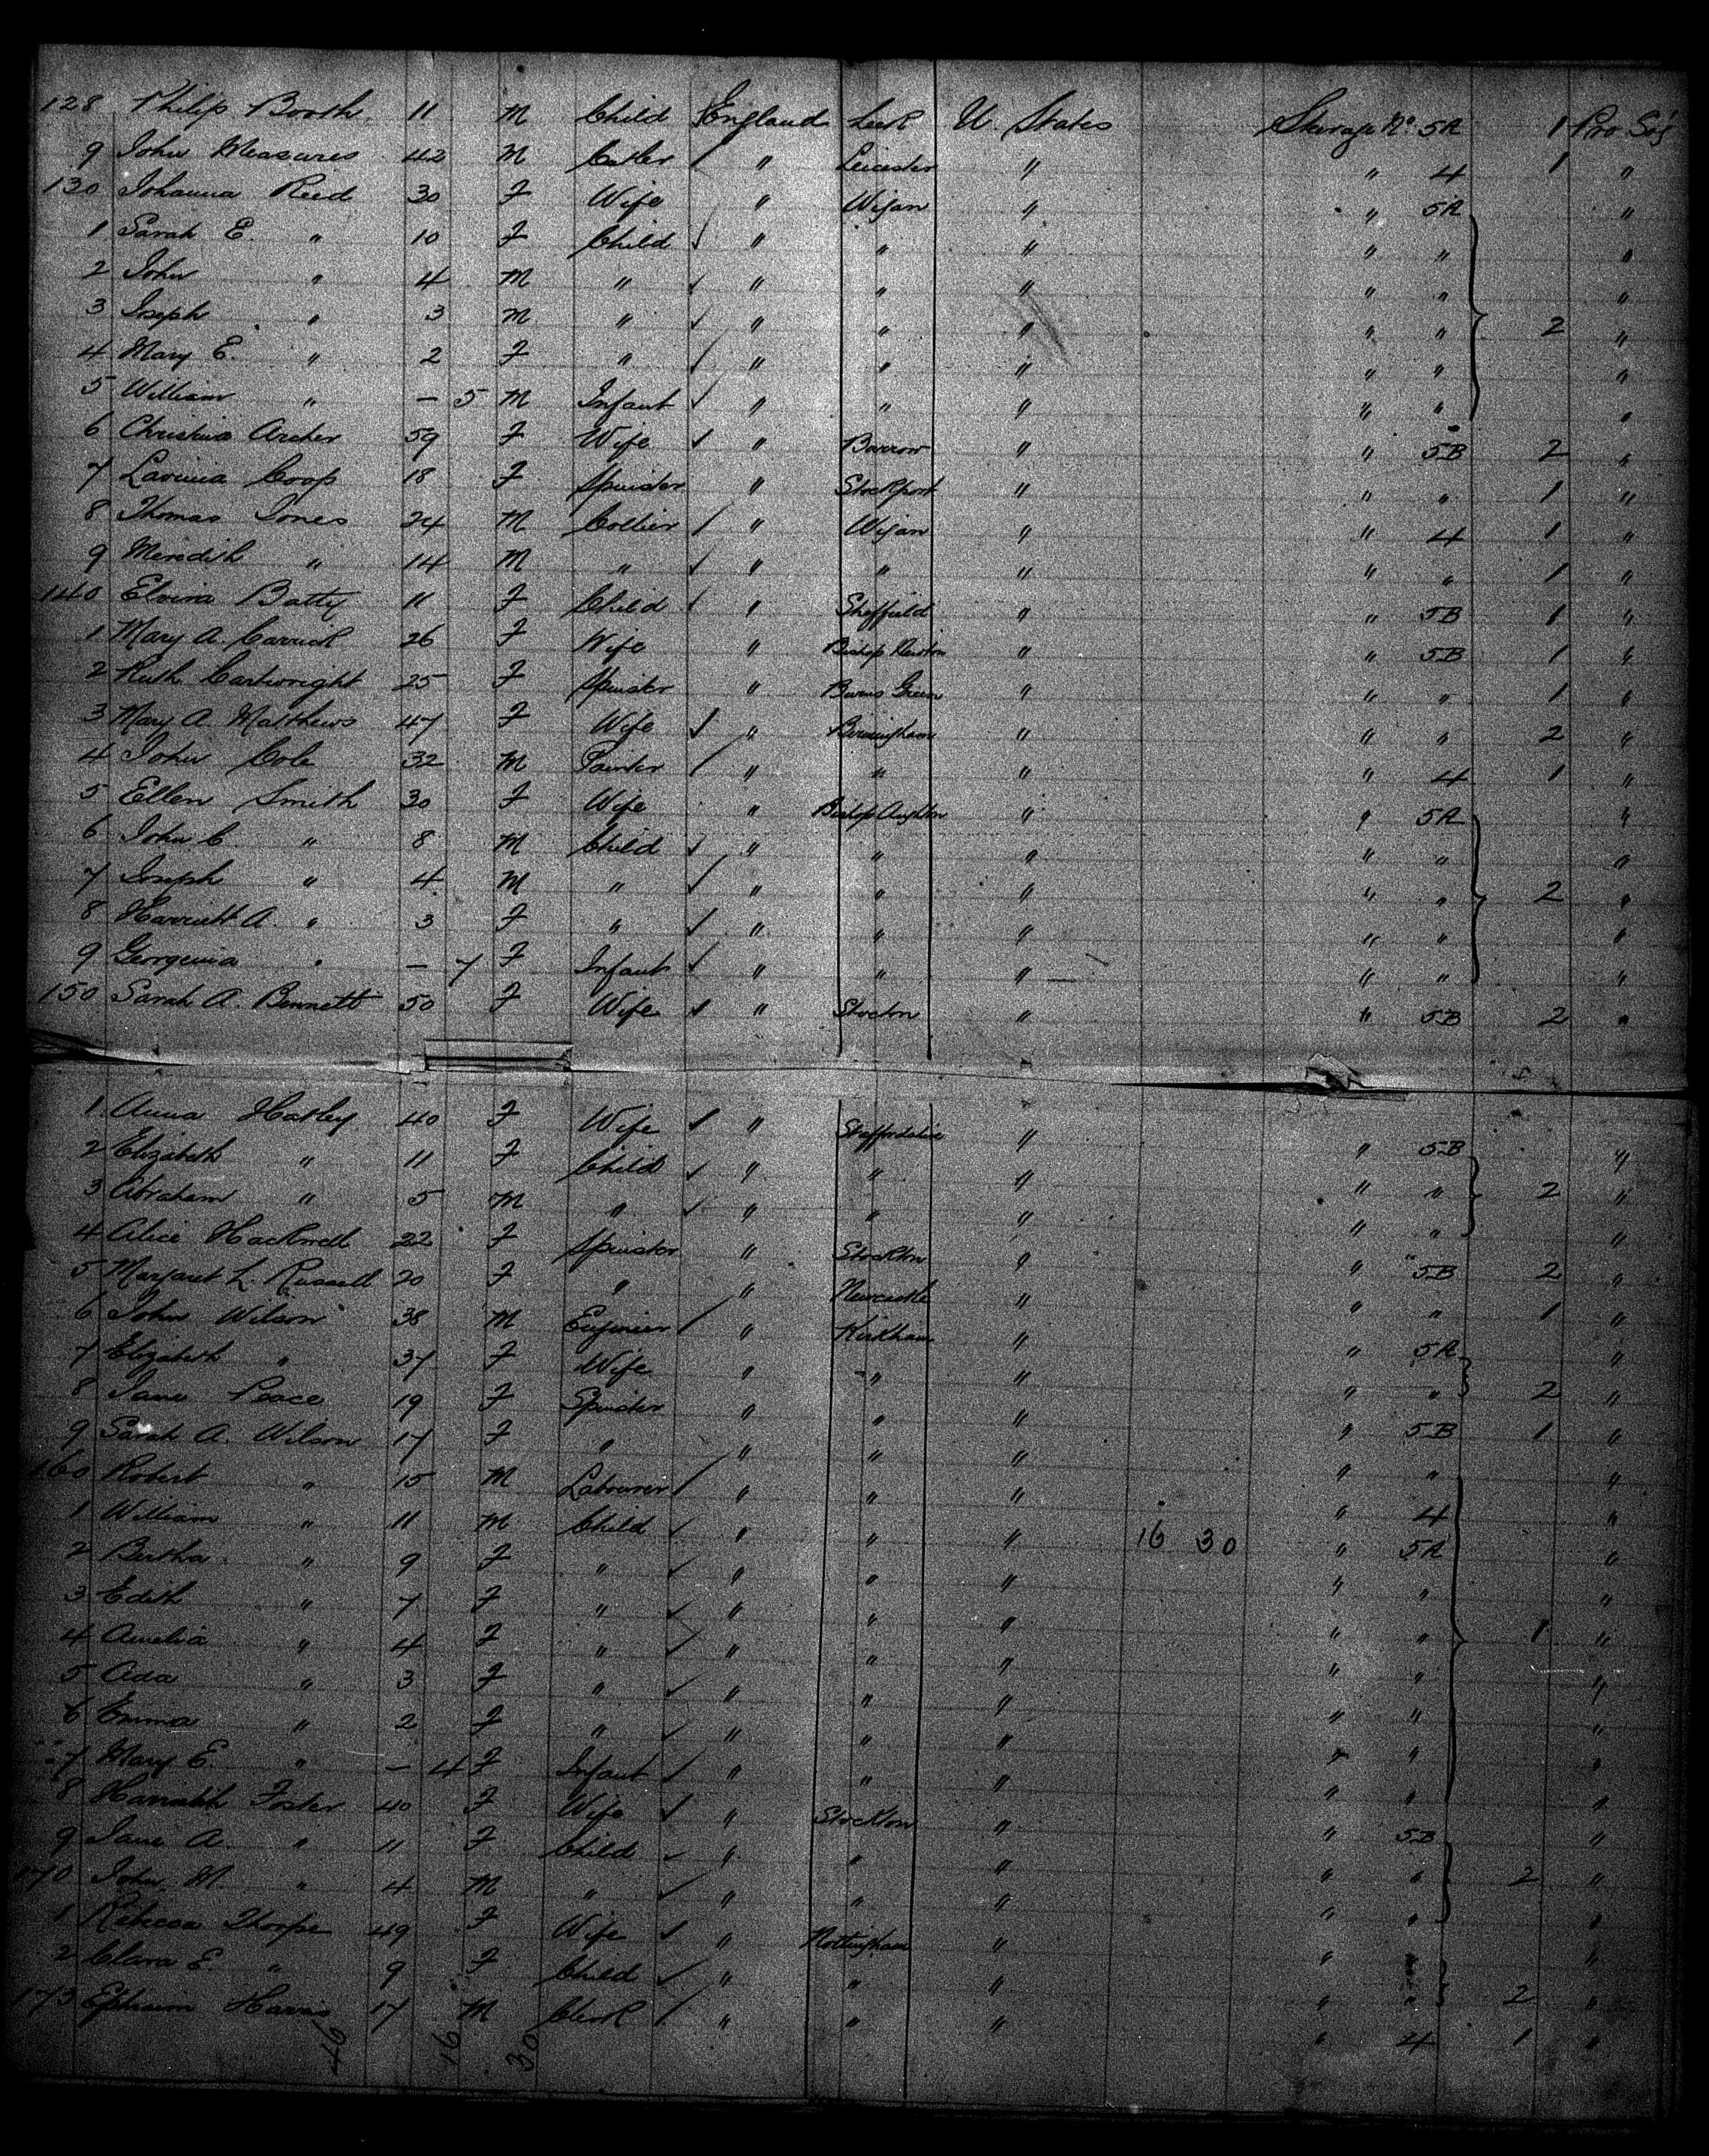 128 Philip Booth 11 M Child England Leek U. States Steerage No. 5A 1 Pro. Sōj
9 John Measures 42 M Cutler / " Leicester " " 4 1 "
130 Johanna Reed 30 F Wife " Wigan " " 5A "
1 Sarah E. " 10 F Child ✓ " " " " " "
2 John " 4 M " ✓ " " " " " "
3 Joseph " 3 M " ✓ " " " " " 2 "
4 Mary E. " 2 F " / " " " " " "
5 William " – 5 M Infant ✓ " " " " " "
6 Christina Archer 59 F Wife ✓ " Barrow " " 5B 2 "
7 Lavinia Coop 18 F Spinster " Stockport " " " 1 "
8 Thomas Jones 24 M Collier / " Wigan " " 4 1 "
9 Meredith " 14 M " ✓ " " " " " 1 "
140 Elvira Batty 11 F Child ✓ " Sheffield " " 5B 1 "
1 Mary A. Carrick 26 F Wife " Bishop " " 5B 1 "
2 Ruth Cartwright 25 F Spinster " Green " " " 1 "
3 Mary A. Matthews 47 F Wife ✓ " Birmingham " " " 2 "
4 John Cole 32 M Painter / " " " " 4 1 "
5 Ellen Smith 30 F Wife " Bishop " " 5A "
6 John C. " 8 M Child ✓ " " " " " "
7 Joseph " 4 M " ✓ " " " " " 2 "
8 Harriett A. " 3 F " ✓ " " " " " "
9 Georgenia " – 7 F Infant ✓ " " " " " "
150 Sarah A. Bennett 50 F Wife ✓ " Stockton " " 5B 2 "
1 Anna Hatley 40 F Wife ✓ " Staffordshire " " 5B "
2 Elizabeth " 11 F Child ✓ " " " " " 2 "
3 Abraham " 5 M " ✓ " " " " " "
4 Alice Hacknell 22 F Spinster " Stockton " " 5B 2 "
5 Margaret L. Russell 20 F " " Newcastle " " " 1 "
6 John Wilson 38 M Engineer / " Kirkham " " 5A "
7 Elizabeth " 37 F Wife " " " " " 2 "
8 Jane Peace 19 F Spinster " " " " 5B 1 "
9 Sarah A. Wilson 17 F " " " " " " "
160 Robert " 15 M Labourer / " " " " 4 "
1 William " 11 M Child ✓ " " " 16 30 " 5A "
2 Bertha " 9 F " ✓ " " " " " "
3 Edith " 7 F " ✓ " " " " " 1 "
4 Amelia " 4 F " ✓ " " " " " "
5 Ada " 3 F " ✓ " " " " " "
6 Emma " 2 F " ✓ " " " " " "
7 Mary E. " – 4 F Infant ✓ " " " " " "
8 Harriett Foster 40 F Wife ✓ " Stockton " " 5B "
9 Jane A. " 11 F Child ✓ " " " " " 2 "
170 John W. " 4 M " ✓ " " " " " "
1 Rebecca Thorpe 49 F Wife ✓ " Nottingham " " "
2 Clara E. " 9 F Child ✓ " " " " " 2 "
173 Ephraim Harris 17 M Clerk / " " " " 4 1 "
46 16 30